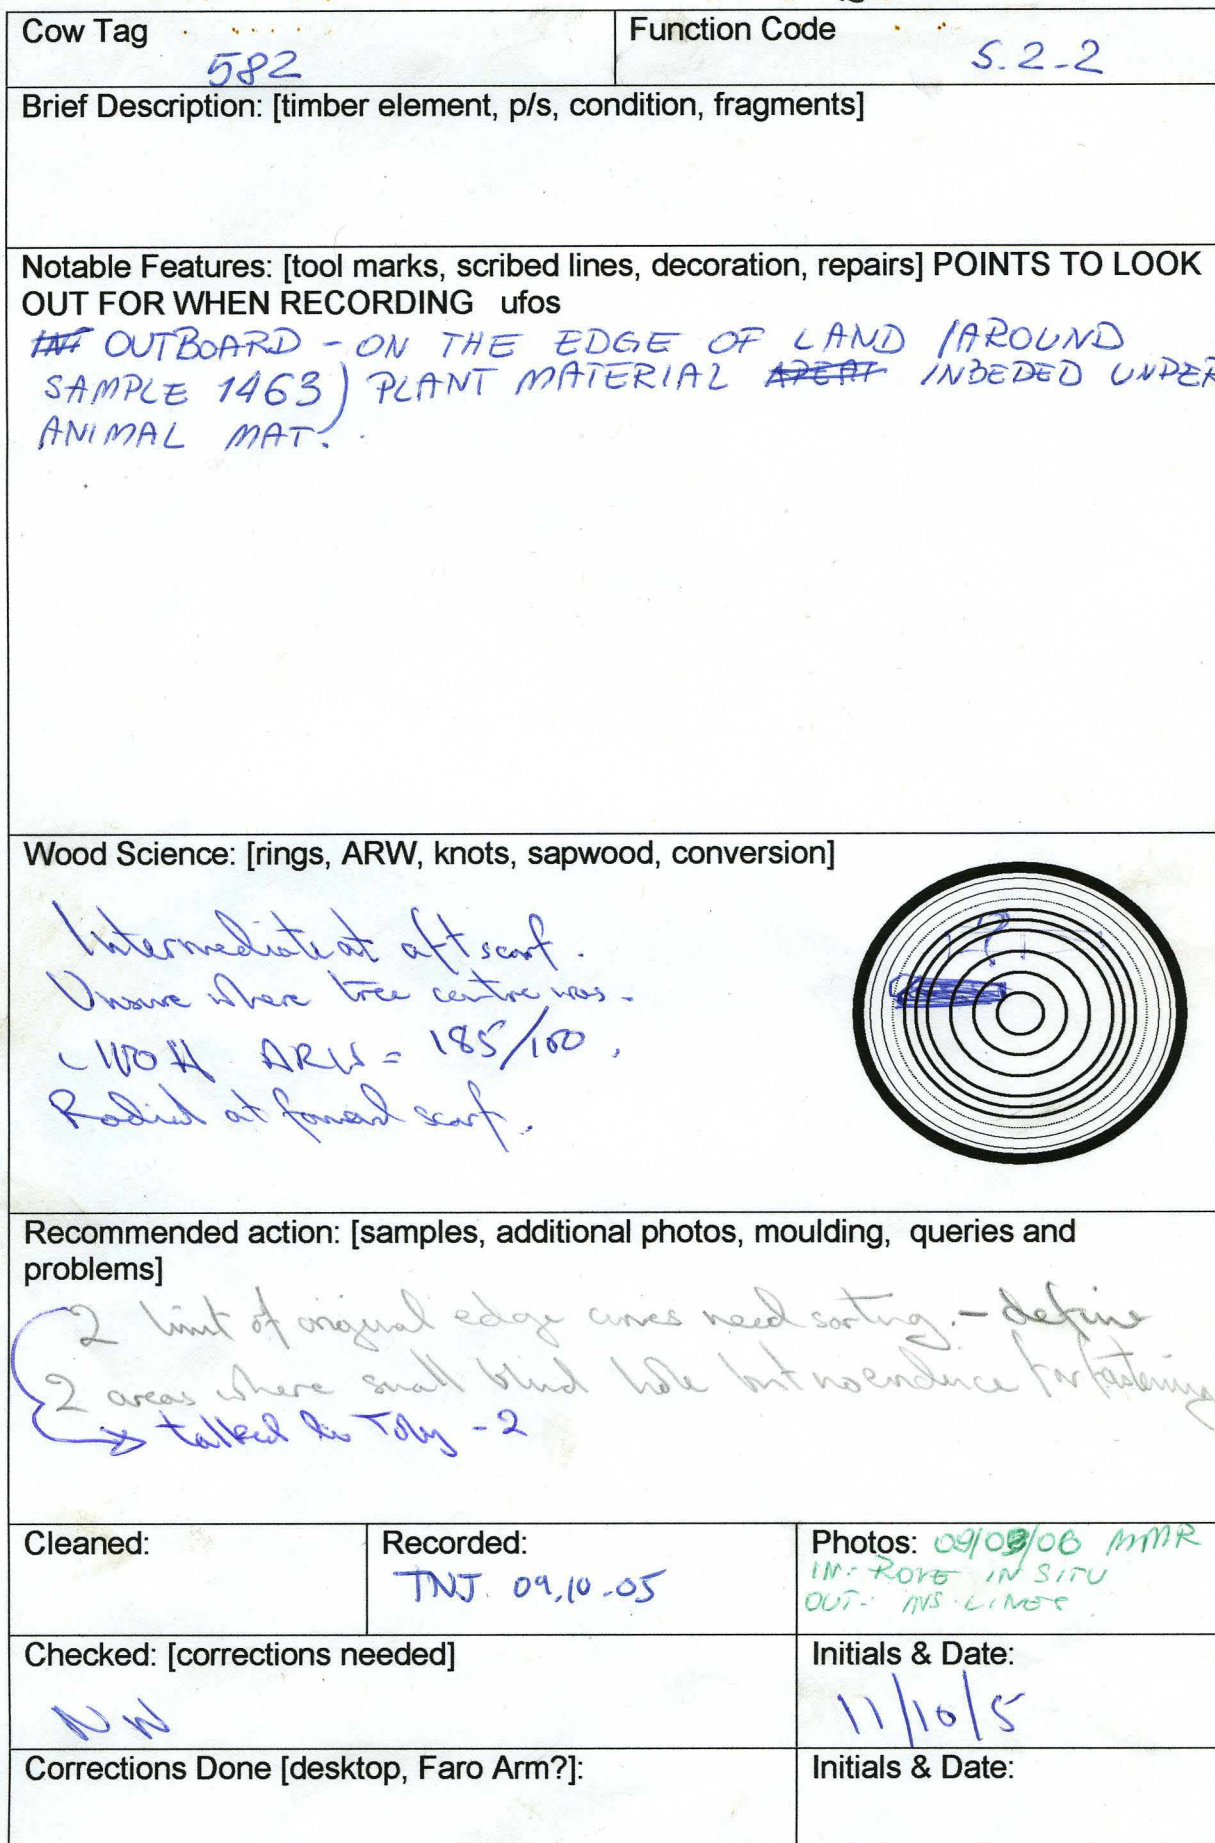 Cow Tag
582
Function Code
S.2-2
Brief Description: [timber element, p/s, condition, fragments]
Notable Features: [tool marks, scribed lines, decoration, repairs] POINTS TO LOOK
OUT FOR WHEN RECORDING ufos
OUTBOARD - ON THE EDGE OF LAND (AROUND
SAMPLE 1463) PLANT MATERIAL INBEDED UNDER
ANIMAL MAT.
Wood Science: [rings, ARW, knots, sapwood, conversion]
Intermediate at aft scarf.
Unsure where tree centre was.
ARW = 185/100.
Radial at forward scarf.
?
Recommended action: [samples, additional photos, moulding, queries and
problems]
2 limit of original edge curves need sorting. - define
2 areas where small blind hole but no evidence for fastening
talked to Toby - 2
Cleaned:
Recorded:
TNJ. 09.10.05
Photos: 09/03/06 MMR
IN: ROVE IN SITU
OUT:
Checked: [corrections needed]
NW
Initials & Date:
11/10/5
Corrections Done [desktop, Faro Arm?]:
Initials & Date: